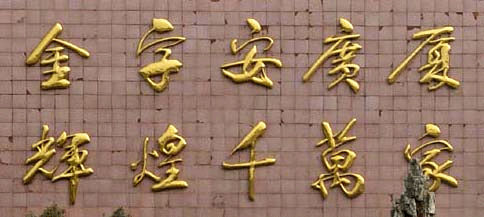 金宇安廣厦
輝煌千萬家